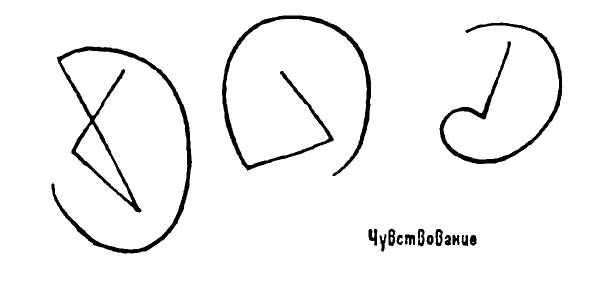 Чувствование